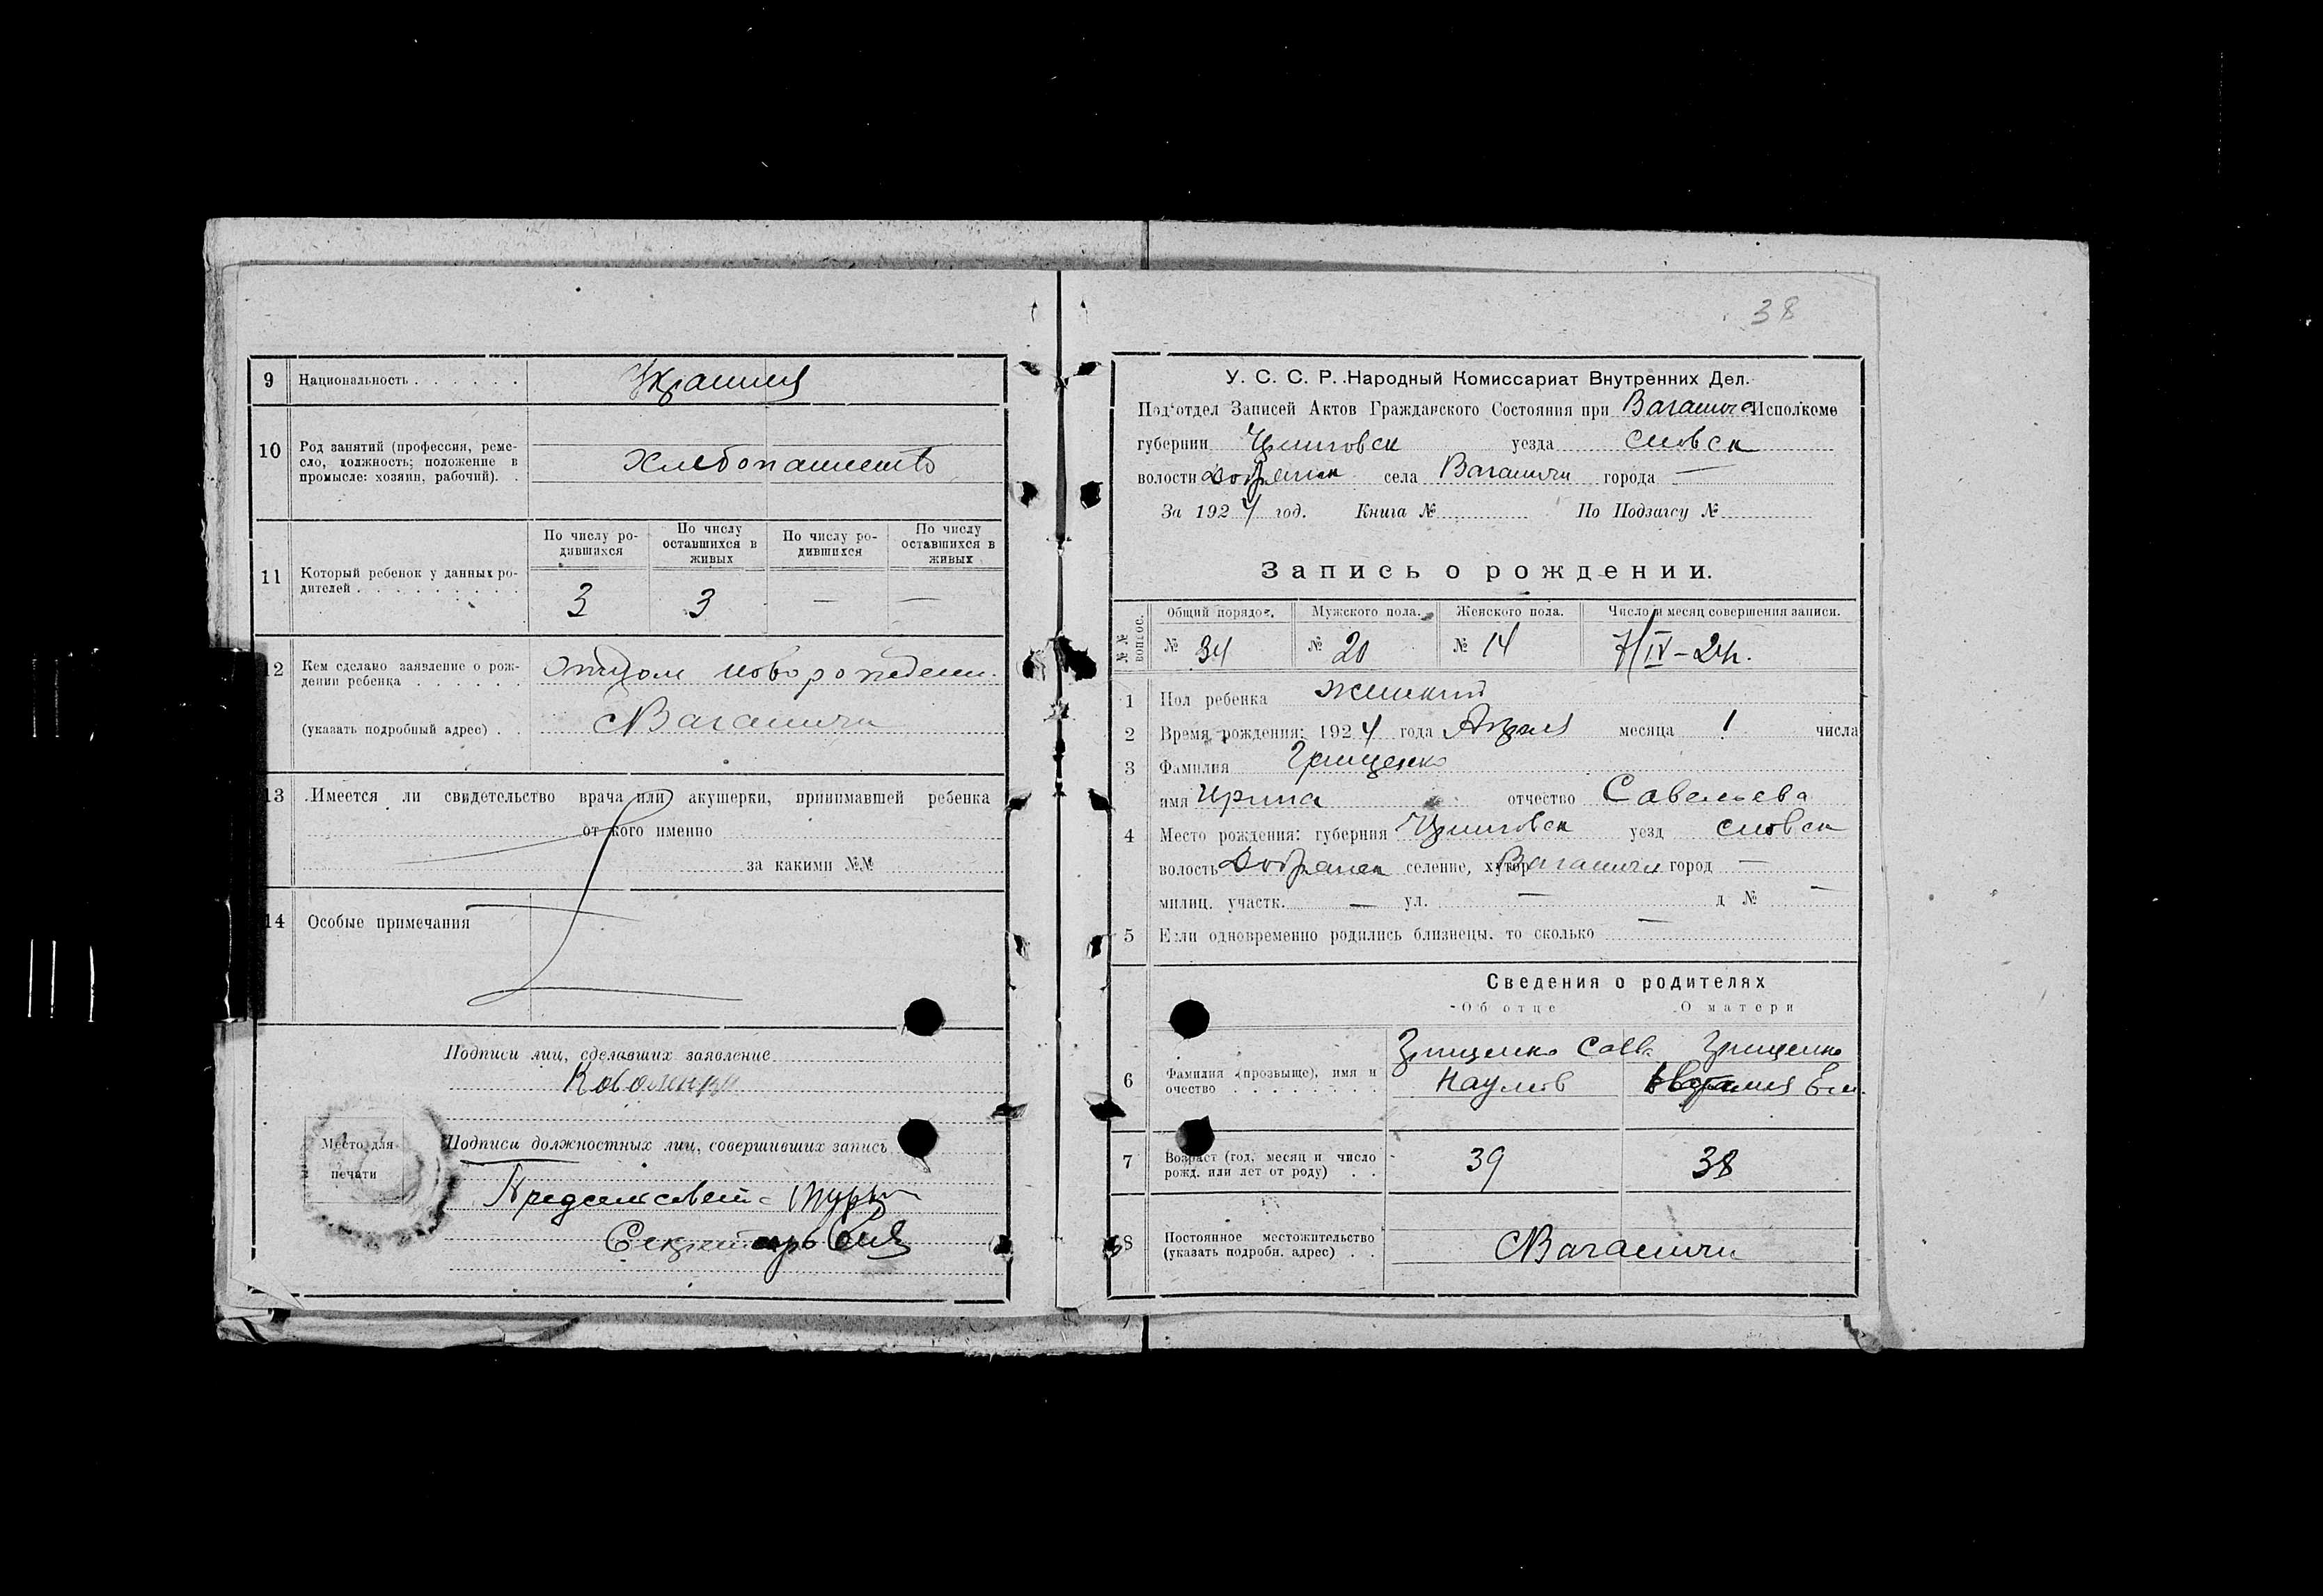 9 Национальность . . . . . .
10 Род занятий (профессия, реме-
сло, должность; положение в
промысле: хозяин, рабочий). .
Хлебопашество
По числу ро-
дившихся
По числу
оставшихся в
живых
По числу ро-
дившихся
По числу
оставшихся в
живых
11 Который ребенок у данных ро-
дителей . . . . . . . . .
3 3 — —
12 Кем сделано заявление о рож-
дении ребенка . . . . . .
отцом новорожден.
(указать подробный адрес) . .
с Ваганичи
13 Имеется ли свидетельство врача или акушерки, принимавшей ребенка
от кого именно
за какими №№
14 Особые примечания
Подписи лиц, сделавших заявление
Место для
печати
Подписи должностных лиц, совершивших запись
Предсельсовета
Секретарь
38
У. С. С. Р. Народный Комиссариат Внутренних Дел.
Под‘отдел Записей Актов Гражданского Состояния при Ваганич Исполкоме
губернии Черниговск уезда Сновск
волости Добрянск села Ваганичи города —
За 1924 год. Книга № По Подзагсу №
Запись о рождении.
№№ вопрос. Общий порядок. Мужского пола. Женского пола. Число и месяц совершения записи.
№ 34 № 20 № 14 7/IV-24г.
1 Пол ребенка женский
2 Время рождения: 1924 года Апреля месяца 1 числа
3 Фамилия Грищенко
имя Ирина отчество Савельева
4 Место рождения: губерния Черниговск уезд Сновск
волость Добрянск селение, хутор Ваганичи город —
милиц. участк. — ул. — д № —
5 Если одновременно родились близнецы, то сколько —
Сведения о родителях
Об отце О матери
6 Фамилия (прозвыще), имя и
очество . . . . . . .
Грищенко Грищенко
Наумов
7 Возраст (год, месяц и число
рожд. или лет от роду) . .
39 38
8 Постоянное местожительство
(указать подробн. адрес) . .
с Ваганичи